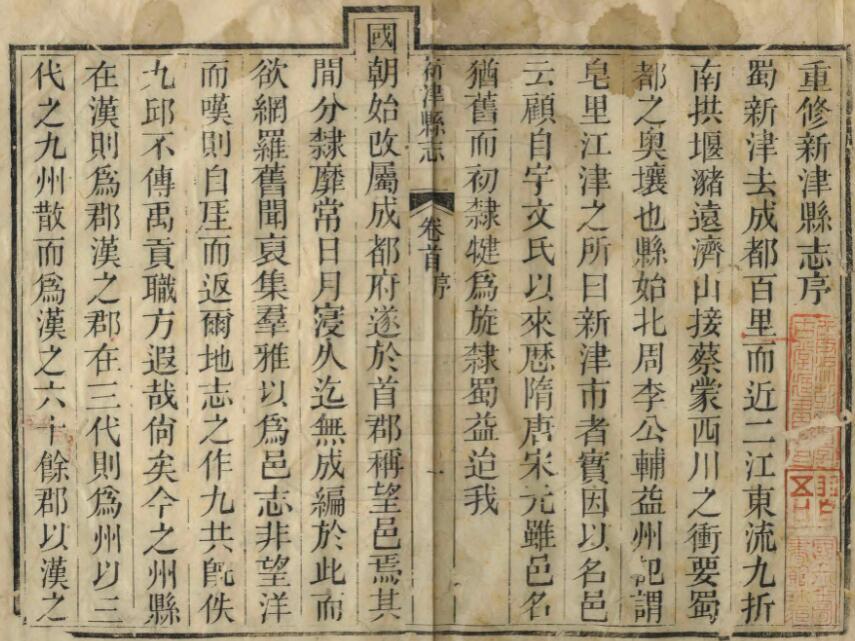 重修新津縣志序
蜀新津去成都百里而近二江東流九折
南拱堰瀦遠濟山接蔡蒙西川之衝要蜀
都之奧壤也縣始北周李公輔益州記謂
皂里江津之所曰新津市者實因以名邑
云顧自宇文氏以來歷隋唐宋元雖邑名
猶舊而初隸犍為旋隸蜀益迨我
新津縣志
卷首序
一
國朝始改屬成都府遂於首郡稱望邑焉其
間分隸靡常日月寖久迄無成編於此而
欲網羅舊聞裒集羣雅以為邑志非望洋
而嘆則自厓而返爾地志之作九共旣佚
九邱不傳禹貢職方遐哉尙矣今之州縣
在漢則為郡漢之郡在三代則為州以三
代之九州散而為漢之六十餘郡以漢之